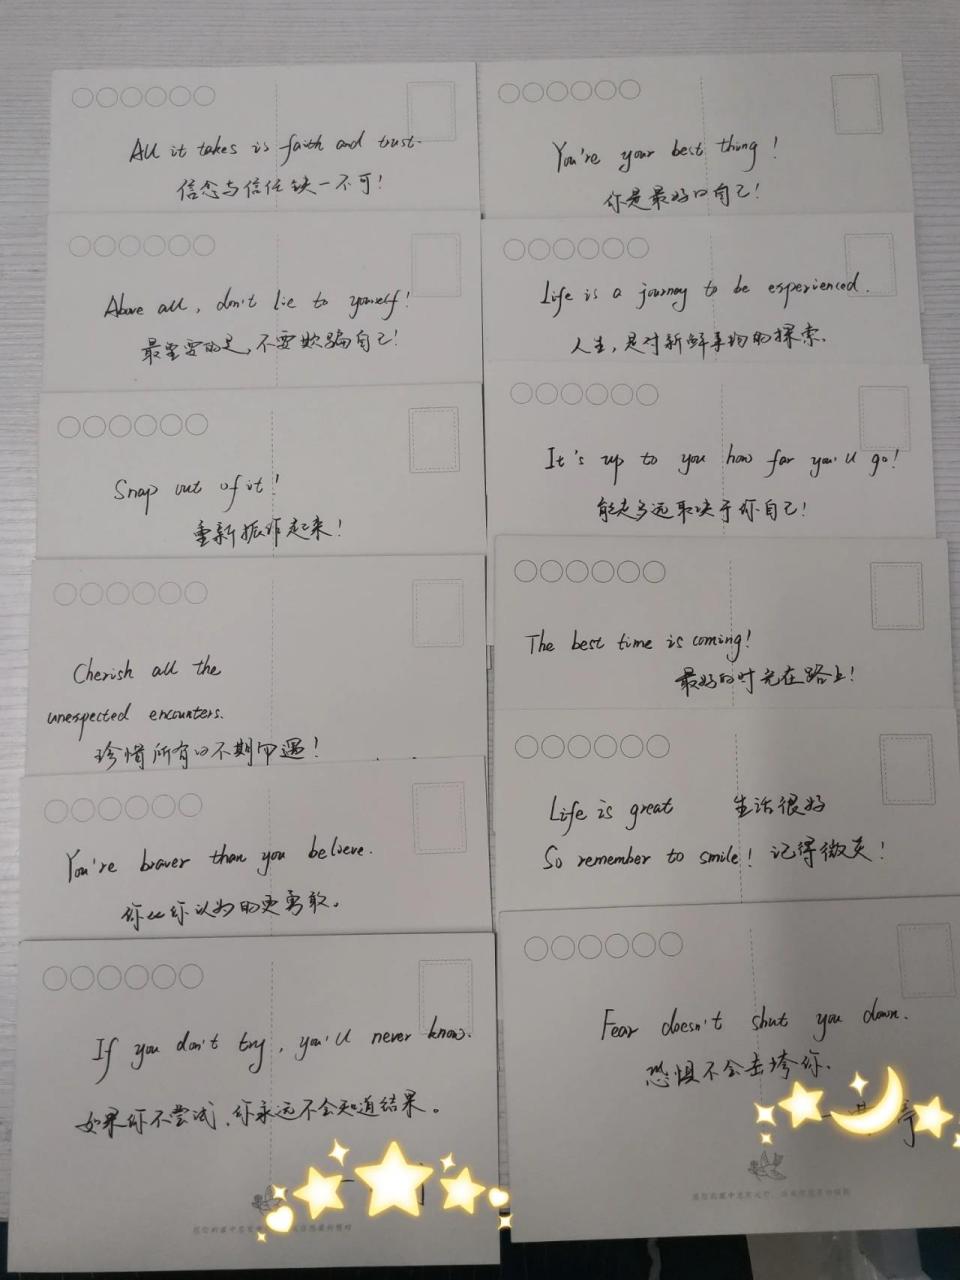 All it takes is faith and trust.
信念与信任缺一不可!
Above all, don't lie to yourself!
最重要的是,不要欺骗自己!
Snap out of it!
重新振作起来!
Cherish all the
unexpected encounters.
珍惜所有的不期而遇!
You're braver than you believe.
你比你认为的更勇敢。
If you don't try, you'll never know.
如果你不尝试,你永远不会知道结果。
You're your best thing!
你是最好的自己!
Life is a journey to be experienced.
人生,是对新鲜事物的探索.
It's up to you how far you'll go!
能走多远取决于你自己!
The best time is coming!
最好的时光在路上!
Life is great 生活很好
So remember to smile! 记得微笑!
Fear doesn't shut you down.
恐惧不会击垮你.